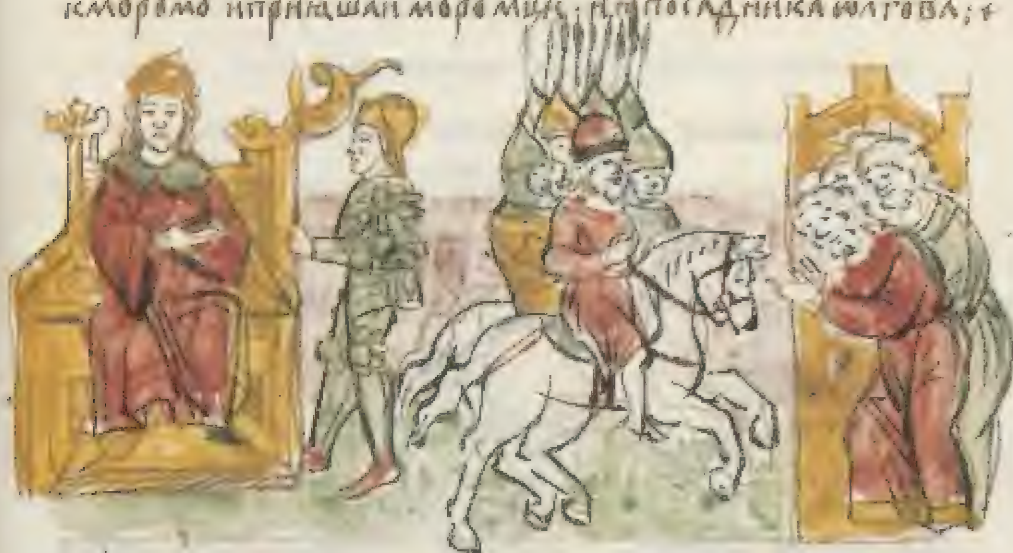 кморомѹ иприѩшаи моромци. иѩпосадника ѡлгова:+